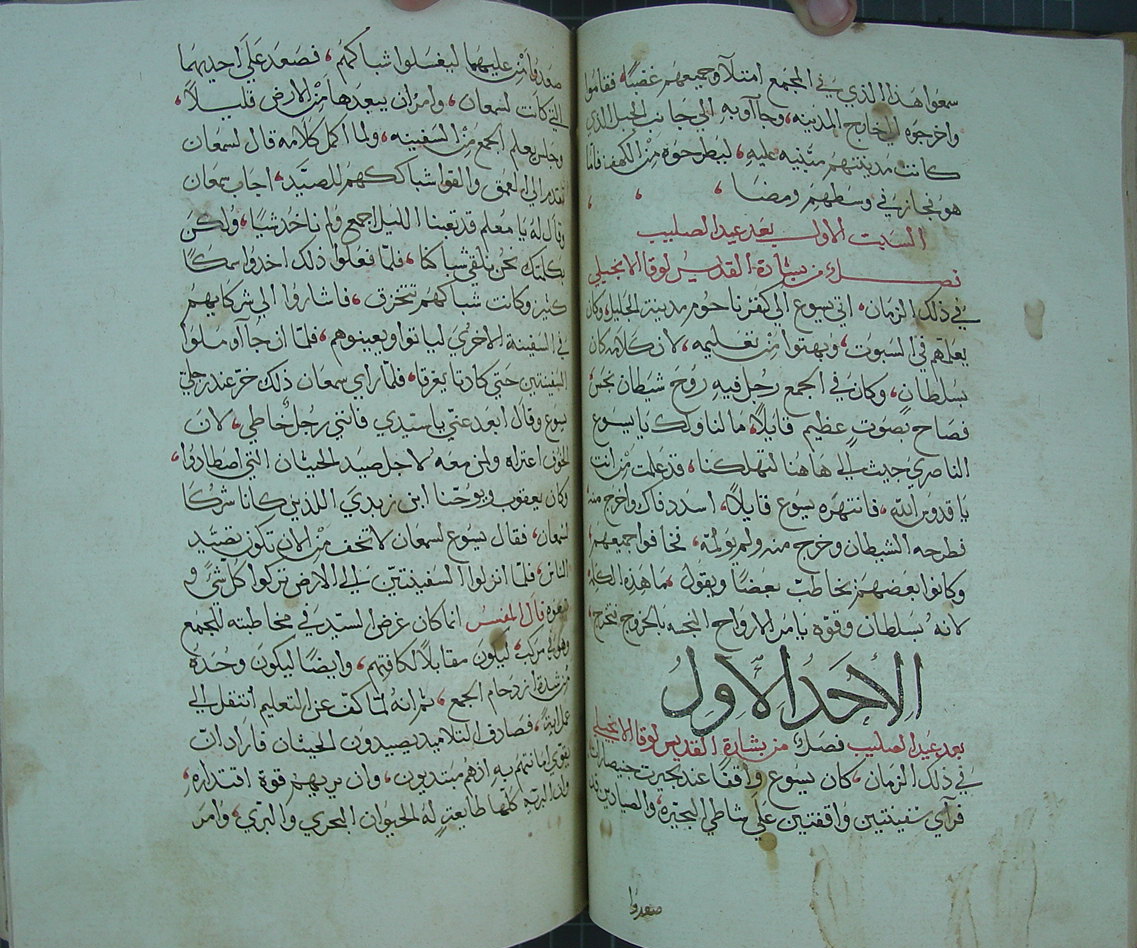 سمعوا هذا الذي في المجمع امتلآ وجميعهم غضبًا، فقاموا
واخرجوه الي خارج المدينه، وجاآوبه الي جانب الجبل الذي
كانت مدينتهم مبنيه عليه، ليطرحوه من الكهف فامّا
هو فجاز في وسطهم ومضا
السبت الاول بعد عيد الصليب
فصل من بشارة القديس لوقا الانجيلي
في ذلك الزمان، اتي يسوع الي كفرناحوم مدينة الجليل، وكان
يعلمهم في السبوت، وبهتوا من تعليمه، لان كلامه كان
بسلطان، وكان في الجمع رجل فيه روح شيطان نجس
فصاح بصوت عظيم قايلاً، ما لنا ولك يا يسوع
الناصري جيت الي هاهنا لتهلكنا، قد علمت من انت
يا قدوس الله، فانتهره يسوع قايلاً، اسدد فاك واخرج منه
فطرحه الشيطان وخرج منه ولم يولمه، فخافوا جميعهم،
وكانوا بعضهم يخاطب بعضًا ويقول، ما هذه الكلمة
لانه بسلطان وقوه يامر الارواح النجسه بالخروج فتخرج،
الأحد الأول
بعد عيد الصليب فصل من بشارة القديس لوقا الانجيلي
في ذلك الزمان، كان يسوع واقفًا عند بحيرت جنيصارات
فرآي سفينتين واقفتين علي شاطي البحيره، والصيادين قد
صعدوا
صعدوا من عليهما ليغسلوا شباكهم، فصعد علي احديهما
التي كانت لسمعان، وامر ان يبعدها من الارض قليلاً،
وجلس يعلم الجمع من السفينه، ولما اكمل كلامه قال لسمعان
تقدم الي العمق والقوا شباككهم للصيد، اجاب سمعان
وقال له يا معلم قد تعبنا الليل اجمع ولم ناخذ شيًا، ولكن
بكلمتك نحن نلقي شباكنا، فلمّا فعلوا ذلك اخدوا سمكًا
كثير وكانت شباكهم تتخرق، فاشاروا الي شركايهم
في السفينة الاخري لياتوا ويعينوهم، فلمّا ان جاآو ملوا
السفينتين حتي كادتا يغرقا، فلمّا راي سمعان ذلك خرّ عند رجلي
يسوع وقال ابعد عني يا سيدي فانني رجل خاطي، لان
الخوف اعتراه ولمن معه لاجل صيد الحيتان التي اصطادوا،
وكان يعقوب ويوحنا ابني زبدي اللذين كانا شركا
لسمعان، فقال يسوع لسمعان لا تخف من الان تكون تصيد
الناس، فلمّا انزلوا السفينتين الي الارض تركوا كل شيً و
تبعوه قال المفسر انما كان غرض السيد في مخاطبته للجمع
وهو في مركب، ليكون مقابلاً لكافتهم، وايضًا ليكون وحده
من شدة ازدحام الجمع، ثم انه لمّا كفّ عن التعليم انتقل الي
عمل اية، فصادف التلاميد يصيدون الحيتان فاراد ان
يقوي امانتهم به اذ هم مبتديون، وان يريهم قوة اقتداره،
وان البريه كلها طايعة له الحيوان البحري والبري، وامر